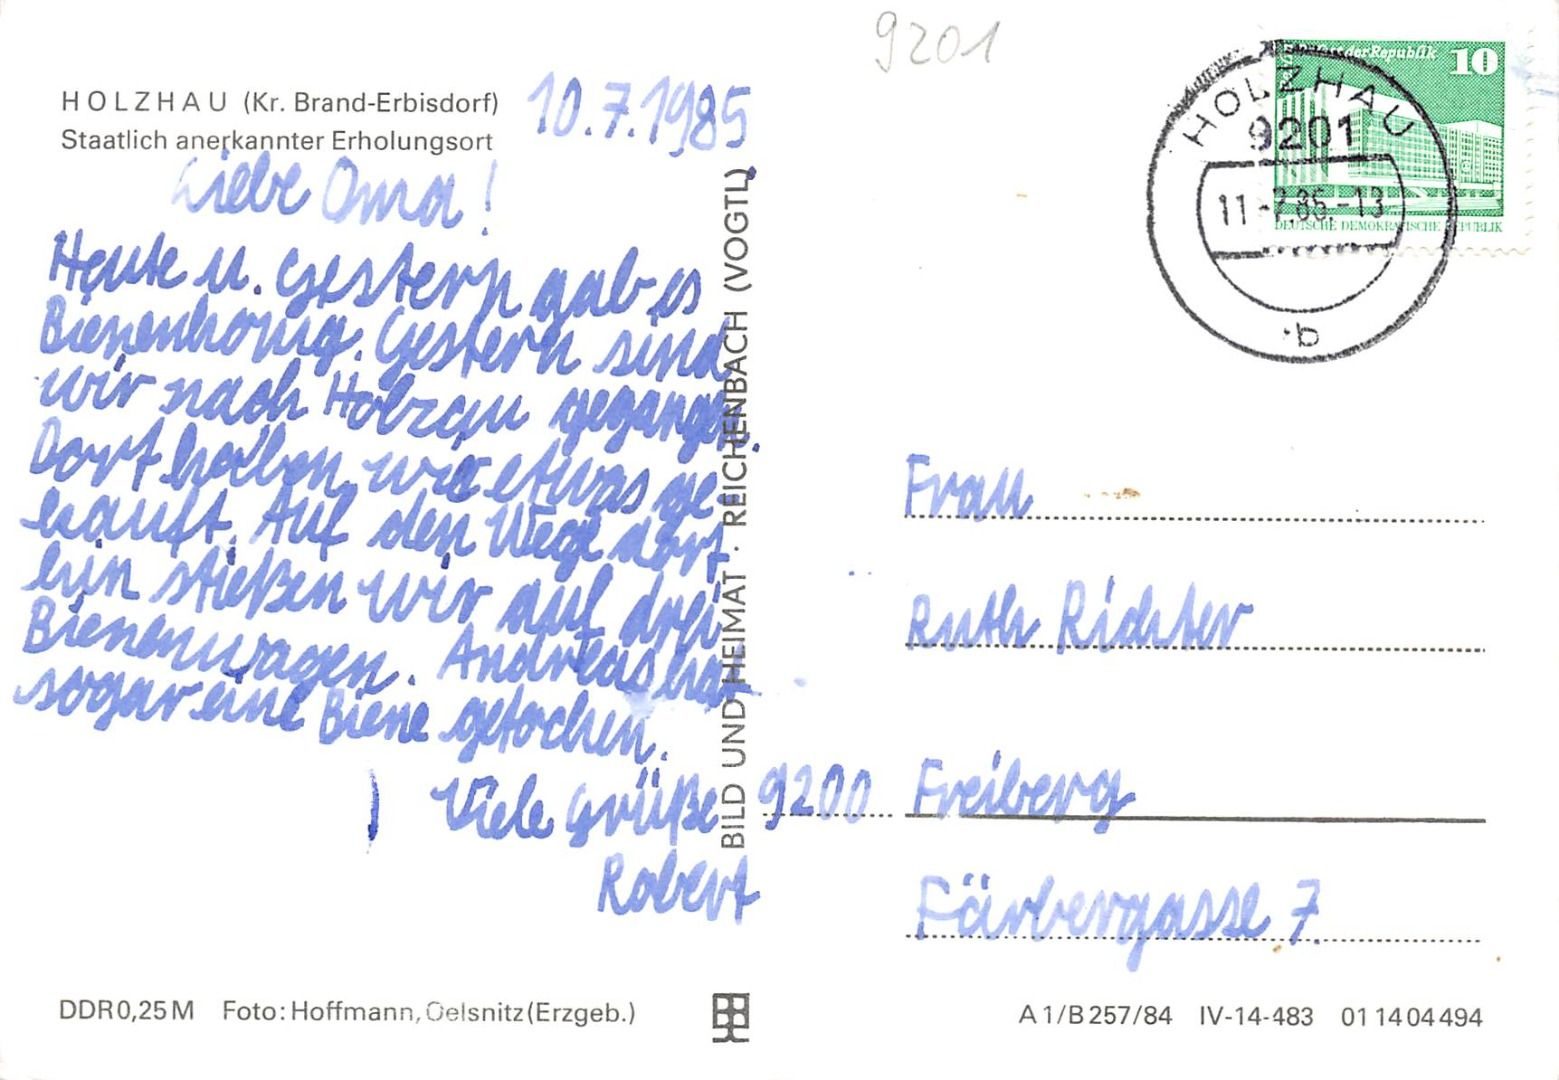 9201
HOLZHAU (Kr. Brand-Erbisdorf)
Staatlich anerkannter Erholungsort
10.7.1985
Liebe Oma!
Heute u. Gestern gab es
Bienenhonig. Gestern sind
wir nach Holzau gegangen.
Dort haben wir etwas ge-
kauft. Auf den Wege dort
hin stießen wir auf drei
Bienenwagen. Andreas hat
sogar eine Biene gestochen.
Viele Grüße
Robert
BILD UND HEIMAT · REICHENBACH (VOGTL)
der Republik 10
DEUTSCHE DEMOKRATISCHE REPUBLIK
HOLZHAU
9201
11.-7.85.-13
b
Frau
Ruth Richter
9200 Freiberg
Färbergasse 7.
DDR 0,25 M Foto: Hoffmann, Oelsnitz (Erzgeb.)
A 1/B 257/84 IV-14-483 01 14 04 494